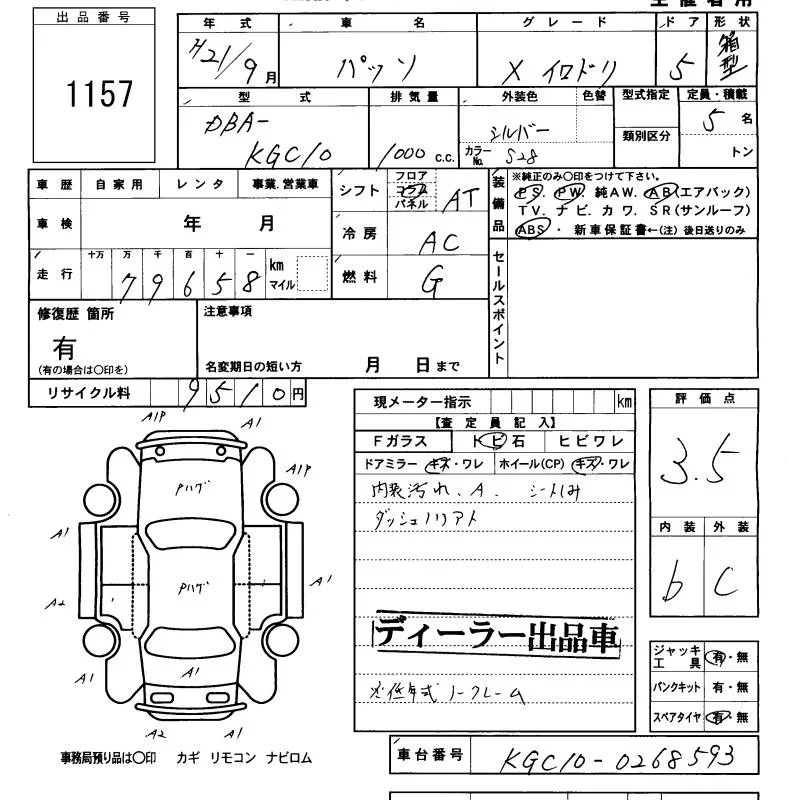 出品番号
1157
年式 車名 グレード ドア 形状
H21/9月 パッソ X イロドリ 5 箱型
型式 排気量 外装色 色替 型式指定 定員・積載
DBA- シルバー 5名
KGC10 1000 c.c. カラーNo. S28 類別区分 トン
車歴 自家用 レンタ 事業.営業車
車検 年 月
走行 十万 万 千 百 十 一
79658 km マイル
シフト フロア コラム パネル AT
冷房 AC
燃料 G
装備品 ※純正のみ○印をつけて下さい。
PS. PW 純AW. AB(エアバック)
TV. ナビ. カワ. SR(サンルーフ)
ABS・ 新車保証書←(注) 後日送りのみ
セールスポイント
修復歴 箇所
有
(有の場合は○印を)
注意事項
名変期日の短い方 月 日まで
リサイクル料 9510円
現メーター指示 km
【査定員記入】
Fガラス トビ石 ヒビワレ
ドアミラー キズ・ワレ ホイール(CP) キズ・ワレ
内装汚れ. A. シートしみ
ダッシュノリアト
ディーラー出品車
評価点
3.5
内装 外装
b C
A1P A1
A1P
Pハゲ
A1
Pハゲ
A2 A1
A1 A1 A1
A2 A1
ジャッキ工具 有・無
パンクキット 有・無
スペアタイヤ 有・無
事務局預り品は○印 カギ リモコン ナビロム
車台番号 KGC10-0268593